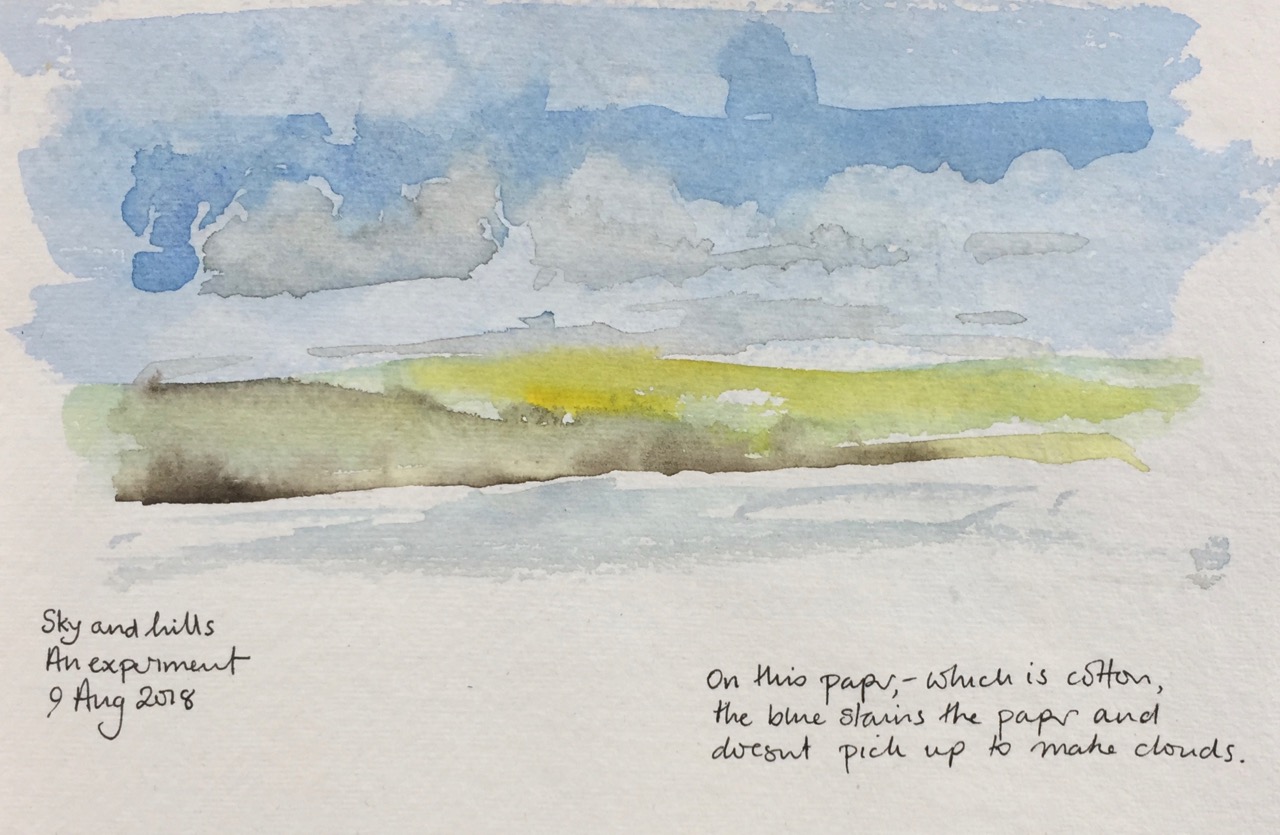 Sky and hills
An experiment
9 Aug 2018
On this paper,- which is cotton,
the blue stains the paper and
doesnt pick up to make clouds.